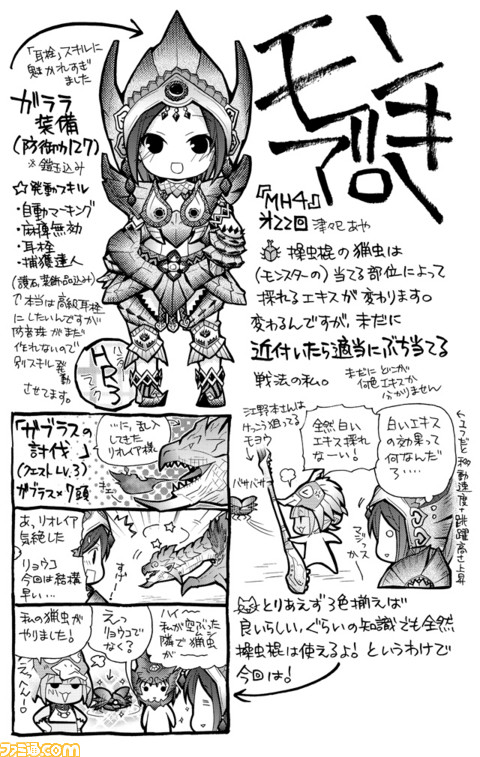 モンキ
ブロ
『MH4』
オ22回 津々巳あや
「耳栓」スキルに
魅かれすぎ
ました
ガララ
装備
(防御力127)
※鎧玉込み
☆発動スキル
・自動マーキング
・麻痺無効
・耳栓
・捕獲達人
(護石、装飾品込み)
で本当は高級耳栓
にしたいんですが
防音珠がまだ
作れないので
別スキル発動
させてます。
ハンターランク
HR3
操虫棍の猟虫は
(モンスターの)当てる部位によって
採れるエキスが変わります。
変わるんですが、未だに
近付いたら適当にぶち当てる
戦法の私。
未だにどこが
何色エキスか
分かりません
江野本さんは
けっこう狙ってる
モヨウ
全然白い
エキス採れ
なーい!
白いエキス
の効果って
何なんだ
ろ‥‥
バサバサ
マジックス
←えっと移動速度+跳躍高さ上昇
とりあえず3色揃えば
良いらしい、ぐらいの知識でも全然
操虫棍は使えるよ!というわけで
今回は!
「ガブラスの
討伐」
(クエストLv.3)
ガブラス×7頭
…に、乱入
してきた
リオレイア様
あ、リオレイア
気絶した
リョウコ
今回は結構
早い…
すげー
私の猟虫が
やりました!
えっ
リョウコで
なく?
ハイ〜
私が空ぶった
隣で猟虫
が〜〜
ファミ通.com